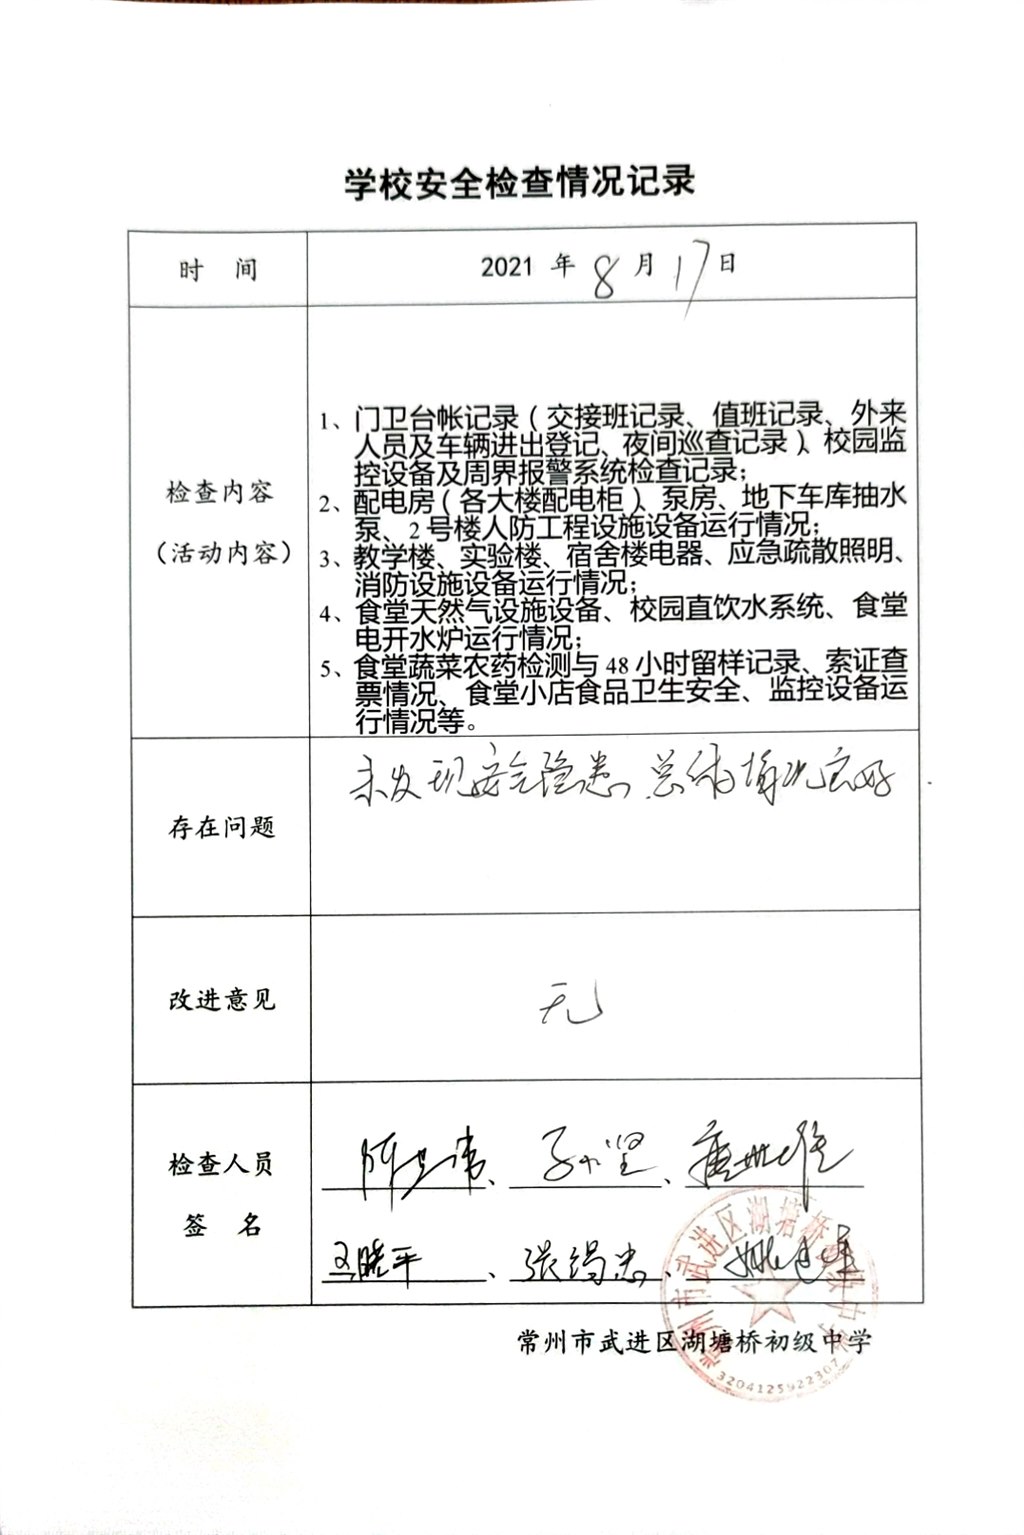 学校安全检查情况记录
时 间
2021 年 8 月 17 日
检查内容
（活动内容）
1、门卫台帐记录（交接班记录、值班记录、外来
人员及车辆进出登记、夜间巡查记录）、校园监
控设备及周界报警系统检查记录；
2、配电房（各大楼配电柜）、泵房、地下车库抽水
泵、2 号楼人防工程设施设备运行情况；
3、教学楼、实验楼、宿舍楼电器、应急疏散照明、
消防设施设备运行情况；
4、食堂天然气设施设备、校园直饮水系统、食堂
电开水炉运行情况；
5、食堂蔬菜农药检测与 48 小时留样记录、索证查
票情况、食堂小店食品卫生安全、监控设备运
行情况等。
存在问题
未发现安全隐患 总体情况良好
改进意见
无
检查人员
签 名
、 、
王晓平、张 忠、
常州市武进区湖塘桥初级中学
常州市武进区湖塘桥初级中学
3204125922307